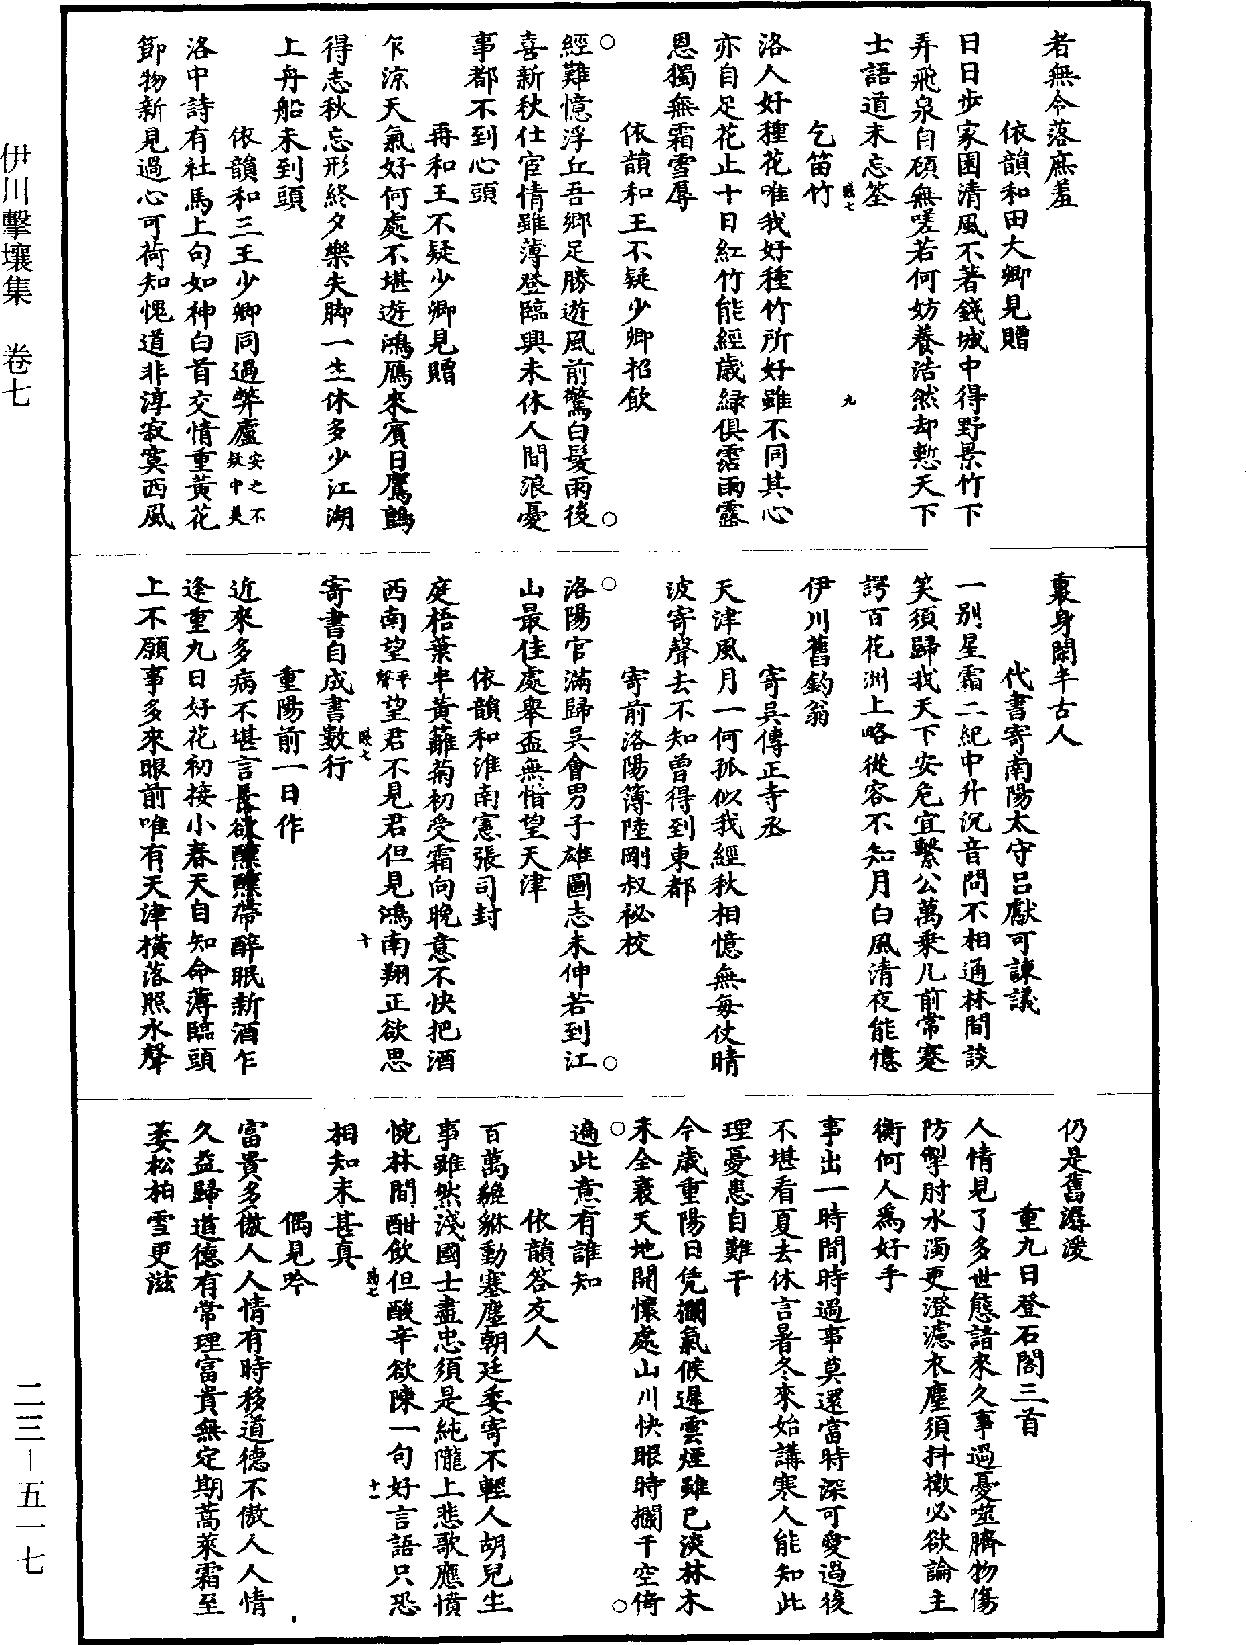 者無令落庶羞
依韻和田大卿見贈
日日步家園清風不著錢城中得野景竹下
弄飛泉自顧無嗟若何妨養浩然却慙天下
士語道未忘筌
乞笛竹
洛人好種花唯我好種竹所好雖不同其心
亦自足花止十日紅竹能經歲綠俱霑雨露
恩獨無霜雪辱
依韻和王不疑少卿招飲
經難憶浮丘吾鄉足勝遊風前驚白髮雨後
喜新秋仕宦情雖薄登臨興未休人間浪憂
事都不到心頭
再和王不疑少卿見贈
乍涼天氣好何處不堪遊鴻鴈來賓日鷹鸇
得志秋忘形終夕樂失脚一生休多少江湖
上舟船未到頭
依韻和三王少卿同過弊廬安之不疑中美
洛中詩有社馬上句如神白首交情重黃花
節物新見過心可荷知愧道非淳寂寞西風
裏身閑半古人
代書寄南陽太守呂獻可諫議
一別星霜二紀中升沉音問不相通林間談
笑須歸我天下安危宜繫公萬乘几前常蹇
諤百花洲上略從容不知月白風清夜能憶
伊川舊釣翁
寄吳傳正寺丞
天津風月一何孤似我經秋相憶無每仗晴
波寄聲去不知曾得到東都
寄前洛陽簿陸剛叔祕校
洛陽官滿歸吳會男子雄圖志未伸若到江
山最佳處舉盃無惜望天津
依韻和淮南憲張司封
庭梧葉半黃籬菊初受霜向晚意不快把酒
西南望平聲望君不見君但見鴻南翔正欲思
寄書自成書數行
重陽前一日作
近來多病不堪言長欲醺醺帶醉眠新酒乍
逢重九日好花初接小春天自知命薄臨頭
上不願事多來眼前唯有天津橫落照水聲
仍是舊潺湲
重九日登石閣三首
人情見了多世態諳來久事過憂噬臍物傷
防掣肘水濁更澄濾衣塵須抖擻必欲論主
衡何人爲好手
事出一時間時過事莫還當時深可愛過後
不堪看夏去休言暑冬來始講寒人能知此
理憂患自難干
今歲重陽日凭攔氣候遲雲煙雖已淡林木
未全衰天地開懷處山川快眼時攔干空倚
遍此意有誰知
依韻答友人
百萬貔貅動塞塵朝廷委寄不輕人胡兒生
事雖然淺國士盡忠須是純隴上悲歌應憤
惋林間酣飲但酸辛欲陳一句好言語只恐
相知未甚真
偶見吟
富貴多傲人人情有時移道德不傲人人情
久益歸道德有常理富貴無定期蒿萊霜至
萎松柏雪更滋
伊川擊壤集 卷七
二三－五一七